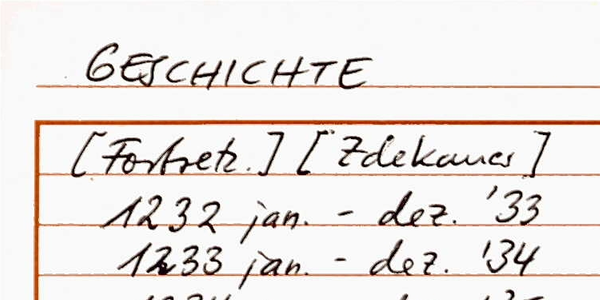 GESCHICHTE
[Fortsetz.] [Zdekauer]
1232 jan. - dez. '33
1233 jan. - dez. '34